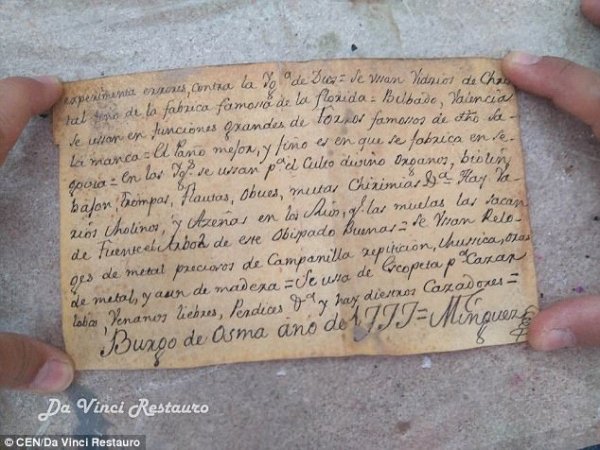 experimenta errores, contra la Yg.ª de Dios = Se vssan Vidrios de Chris
tal fino de la fabrica famossa de la florida = Bilbado, Valencia
se vssan en funciones grandes de toros famosos de
manca = El Pano mejor, y fino es en que se fabrica en Se
govia = En las Yg.s se vssan p.ª el Culto divino organos, biolin
bajon, trompas, flautas, obues, Chirimias &ª = Hay Va
rios Molinos, y Azeñas en los Rios, y las muelas las sacan
de Fuente el Arbol de este Obispado Buenas = Se Vsan Relo
ges de metal preciosos de Campanilla repiticion, Mussica, otros
de metal, y aun de madera = Se usa de Escopeta p.ª Cazar
lobos, Venanos liebres, Perdices &ª y hay diestros Cazadores =
Burgo de Osma ano de 1777 = Minguez
Da Vinci Restauro
© CEN/Da Vinci Restauro